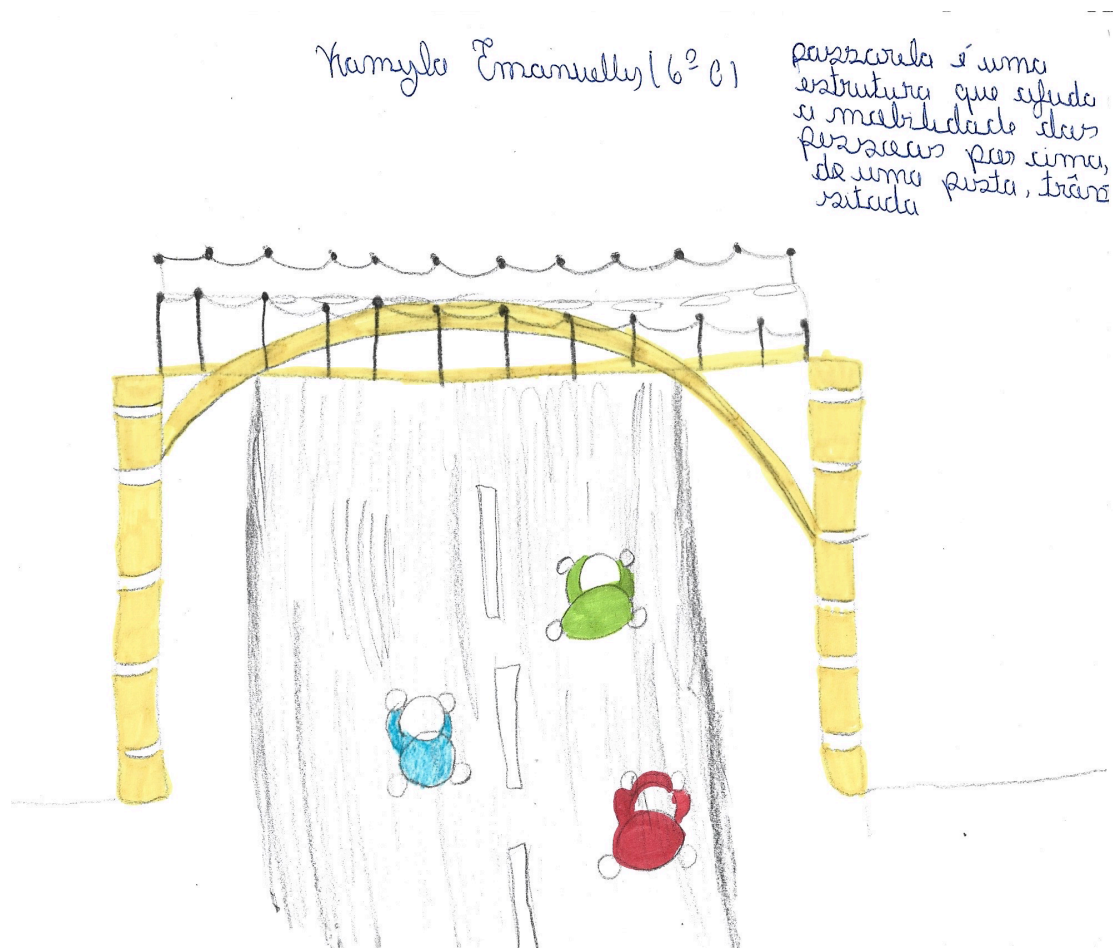 Kamyla Emanuelly (6º C)
passarela é uma
estrutura que ajuda
a mobilidade das
pessoas por cima,
de uma pista, trân
sitada